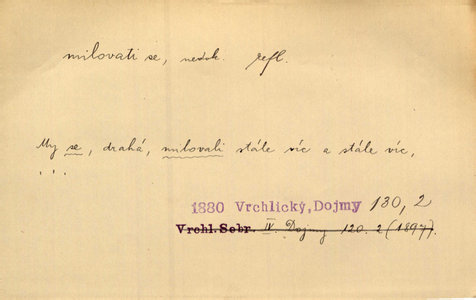 milovati se, nedok. refl.
My se, drahá, milovali stále víc a stále víc,
...
1880 Vrchlický, Dojmy 130, 2
Vrchl. Sebr. IV. Dojmy 120. 2 (1897).